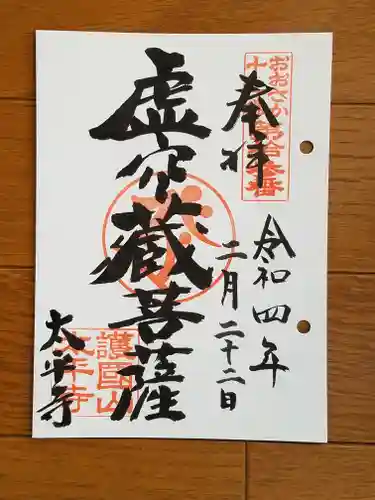 おおさか十三佛第拾参番
奉拝
令和四年
二月二十二日
虚空蔵菩薩
護国山
太平寺
太平寺